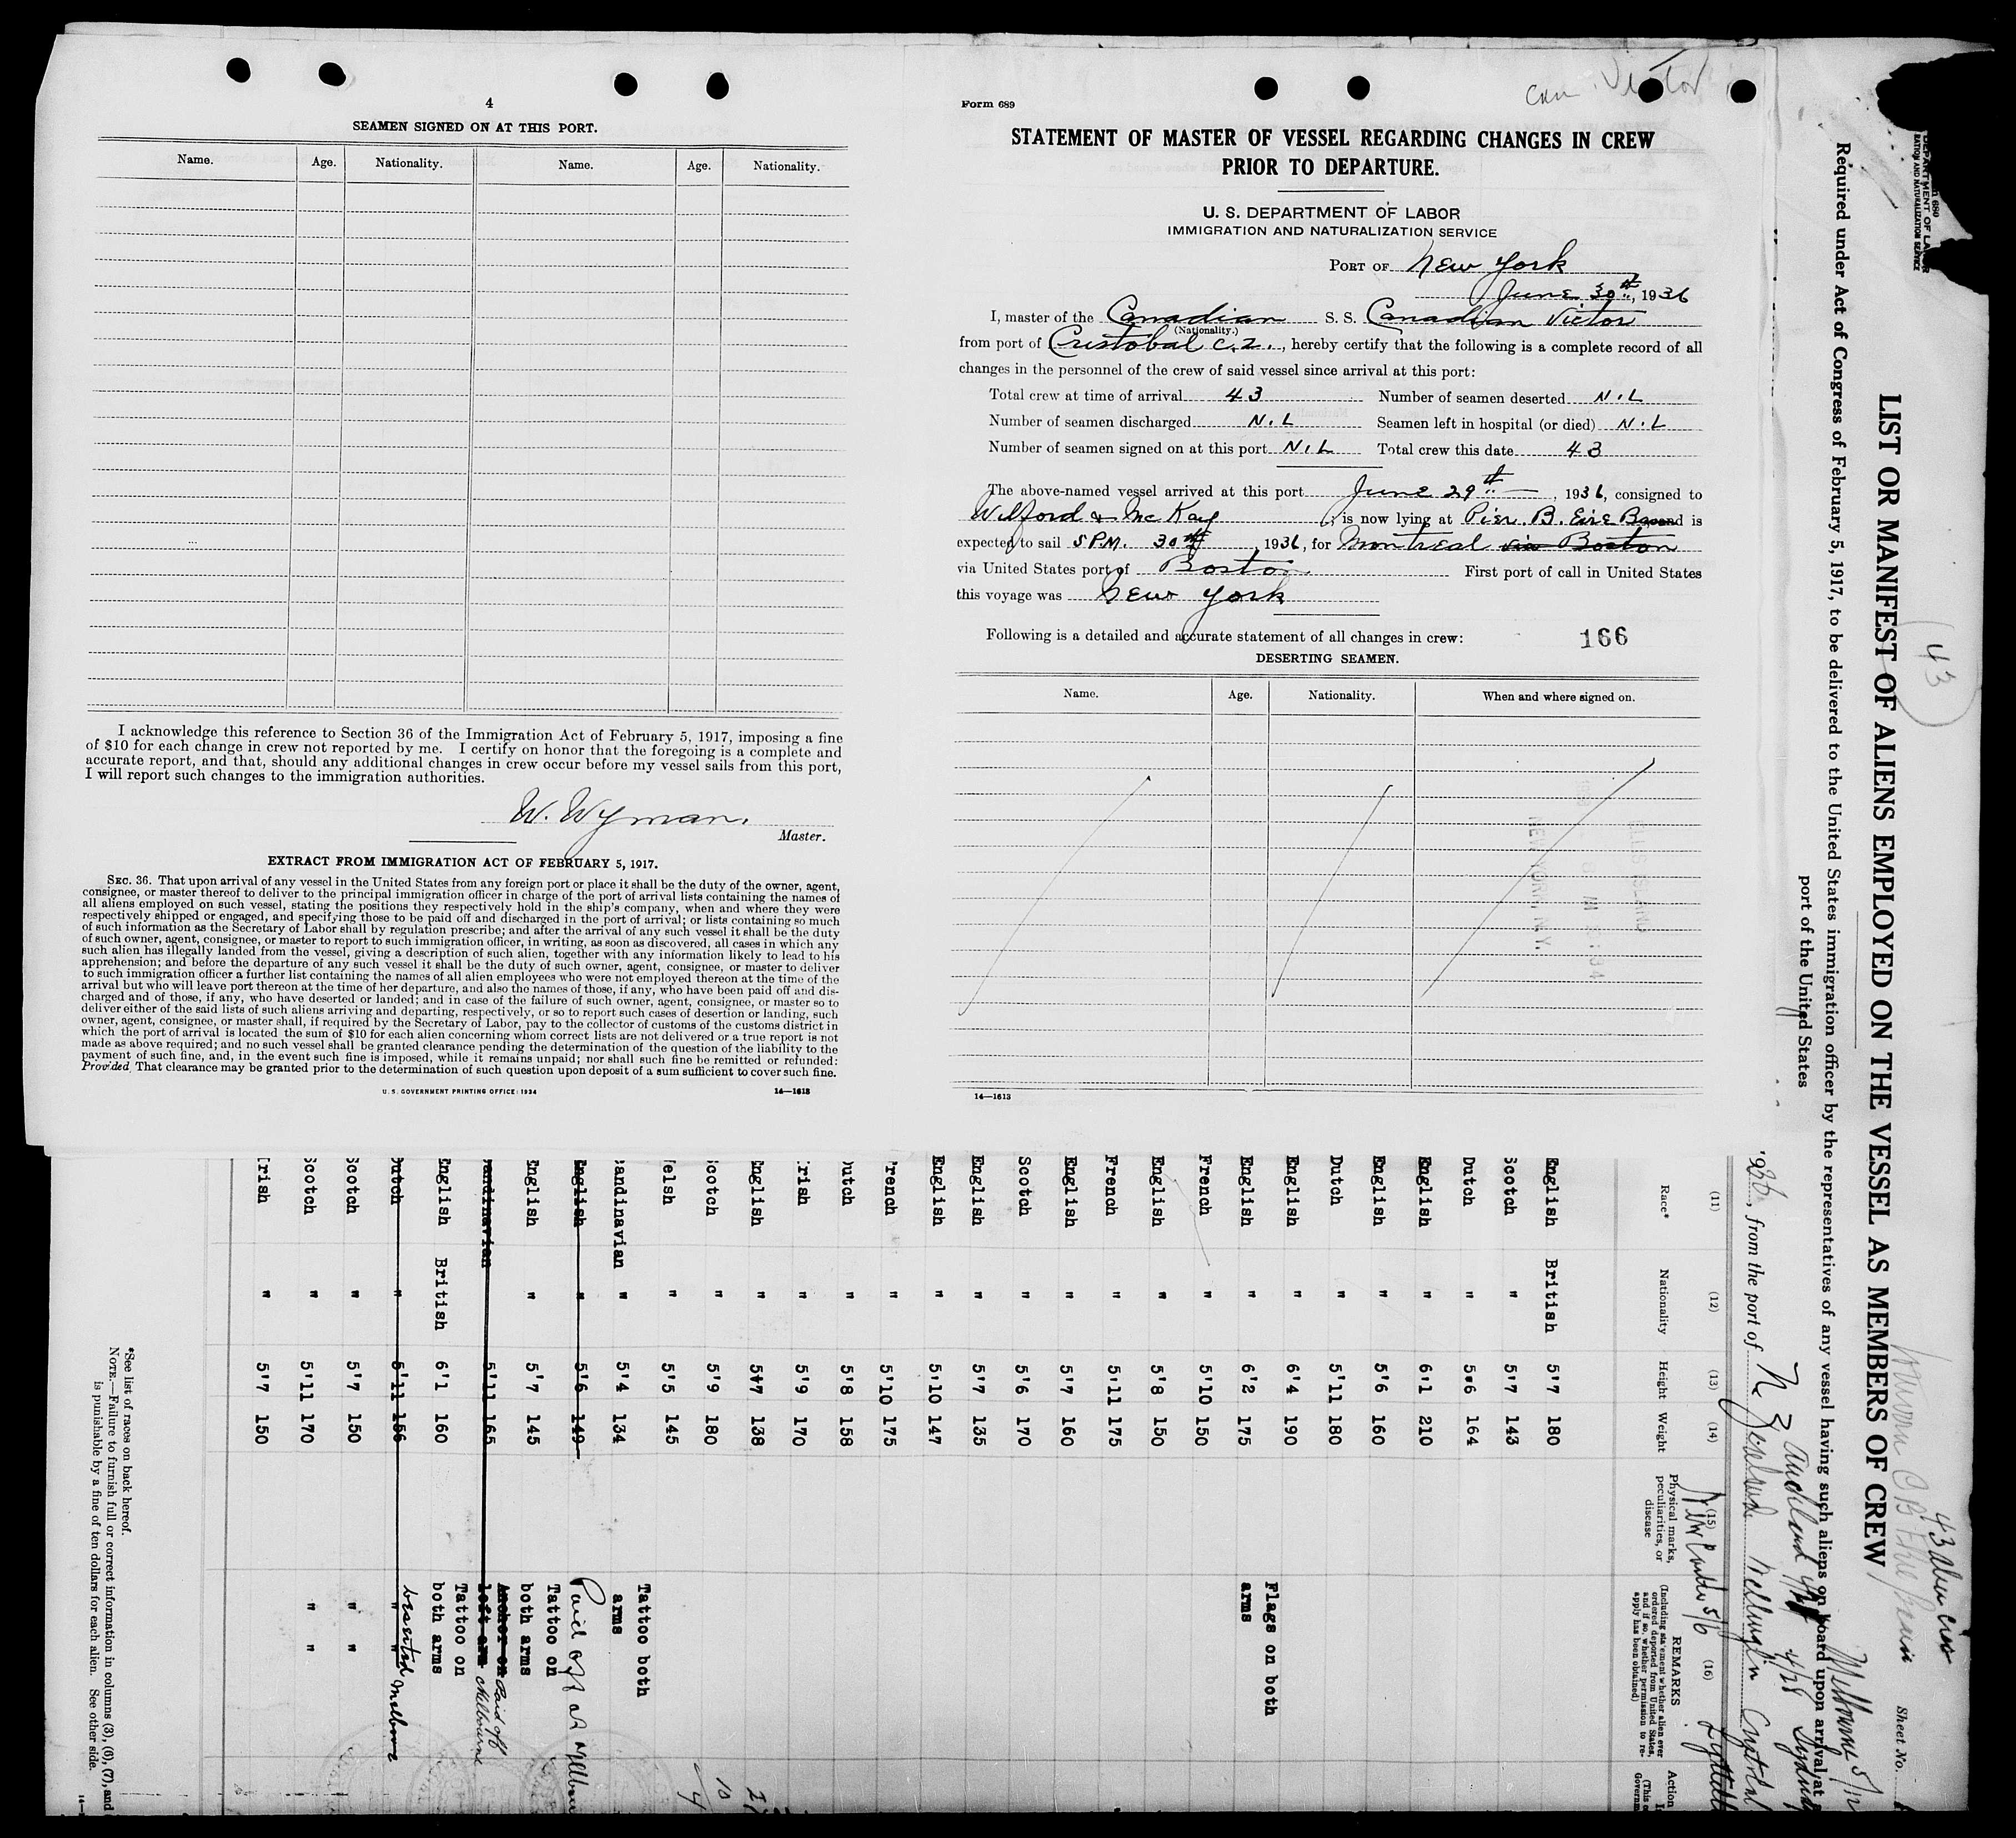 4
SEAMEN SIGNED ON AT THIS PORT.
Name. Age. Nationality. Name. Age. Nationality.
I acknowledge this reference to Section 36 of the Immigration Act of February 5, 1917, imposing a fine
of $10 for each change in crew not reported by me. I certify on honor that the foregoing is a complete and
accurate report, and that, should any additional changes in crew occur before my vessel sails from this port,
I will report such changes to the immigration authorities.
W. Wyman.
Master.
EXTRACT FROM IMMIGRATION ACT OF FEBRUARY 5, 1917.
SEC. 36. That upon arrival of any vessel in the United States from any foreign port or place it shall be the duty of the owner, agent,
consignee, or master thereof to deliver to the principal immigration officer in charge of the port of arrival lists containing the names of
all aliens employed on such vessel, stating the positions they respectively hold in the ship's company, when and where they were
respectively shipped or engaged, and specifying those to be paid off and discharged in the port of arrival; or lists containing so much
of such information as the Secretary of Labor shall by regulation prescribe; and after the arrival of any such vessel it shall be the duty
of such owner, agent, consignee, or master to report to such immigration officer, in writing, as soon as discovered, all cases in which any
such alien has illegally landed from the vessel, giving a description of such alien, together with any information likely to lead to his
apprehension; and before the departure of any such vessel it shall be the duty of such owner, agent, consignee, or master to deliver
to such immigration officer a further list containing the names of all alien employees who were not employed thereon at the time of the
arrival but who will leave port thereon at the time of her departure, and also the names of those, if any, who have been paid off and dis-
charged and of those, if any, who have deserted or landed; and in case of the failure of such owner, agent, consignee, or master so to
deliver either of the said lists of such aliens arriving and departing, respectively, or so to report such cases of desertion or landing, such
owner, agent, consignee, or master shall, if required by the Secretary of Labor, pay to the collector of customs of the customs district in
which the port of arrival is located the sum of $10 for each alien concerning whom correct lists are not delivered or a true report is not
made as above required; and no such vessel shall be granted clearance pending the determination of the question of the liability to the
payment of such fine, and, in the event such fine is imposed, while it remains unpaid; nor shall such fine be remitted or refunded:
Provided, That clearance may be granted prior to the determination of such question upon deposit of a sum sufficient to cover such fine.
U. S. GOVERNMENT PRINTING OFFICE: 1934 14—1613
Can. Victor
Form 689
STATEMENT OF MASTER OF VESSEL REGARDING CHANGES IN CREW
PRIOR TO DEPARTURE.
U. S. DEPARTMENT OF LABOR
IMMIGRATION AND NATURALIZATION SERVICE
PORT OF New York
June 30th, 1936
I, master of the Canadian S. S. Canadian Victor
(Nationality.)
from port of Cristobal C.Z., hereby certify that the following is a complete record of all
changes in the personnel of the crew of said vessel since arrival at this port:
Total crew at time of arrival 43 Number of seamen deserted NIL
Number of seamen discharged NIL Seamen left in hospital (or died) NIL
Number of seamen signed on at this port NIL Total crew this date 43
The above-named vessel arrived at this port June 29th, 1936, consigned to
Wilford & McKay, is now lying at Pier. B. Eire and is
expected to sail 5 P.M. 30th, 1936, for Montreal via Boston
via United States port of Boston First port of call in United States
this voyage was New York
Following is a detailed and accurate statement of all changes in crew: 166
DESERTING SEAMEN.
Name. Age. Nationality. When and where signed on.
ELLIS ISLAND
NEW YORK, N.Y.
14—1613
DEPARTMENT OF LABOR
LIST OR MANIFEST OF ALIENS EMPLOYED ON THE VESSEL AS MEMBERS OF CREW
43
Sheet No.
Required under Act of Congress of February 5, 1917, to be delivered to the United States immigration officer by the representatives of any vessel having such aliens on board upon arrival at
port of the United States
from the port of
(11) (12) (13) (14) (15) (16)
Race* Nationality Height Weight Physical marks, peculiarities, or disease REMARKS
(Including statement whether alien ever ordered deported from United States, and if so, whether permission to reapply has been obtained)
English British 5'7 180
Scotch " 5'7 143
Dutch " 5'6 164
English " 6'1 210
English " 5'6 160
Dutch " 5'11 180
English " 6'4 190
English " 6'2 175 Flags on both arms
French " 5'10 150
English " 5'8 150
French " 5'11 175
English " 5'7 160
Scotch " 5'6 170
English " 5'7 135
English " 5'10 147
French " 5'10 175
Dutch " 5'8 158
Irish " 5'9 170
English " 5'7 138
Scotch " 5'9 180
Welsh " 5'5 145
Scandinavian " 5'4 134 Tattoo both arms
English " 5'6 149 Paid off at Melbourne
English " 5'7 145 Tattoo on both arms
Scandinavian 5'11 165 Anchor on left arm Paid off Melbourne
English British 6'1 160 Tattoo on both arms
Dutch " 5'11 166 " " Deserted Melbourne
Scotch " 5'7 150 " "
Scotch " 5'11 170 " "
Irish " 5'7 150
*See list of races on back hereof.
NOTE.—Failure to furnish full or correct information in columns (3), (6), (7), and
is punishable by a fine of ten dollars for each alien. See other side.